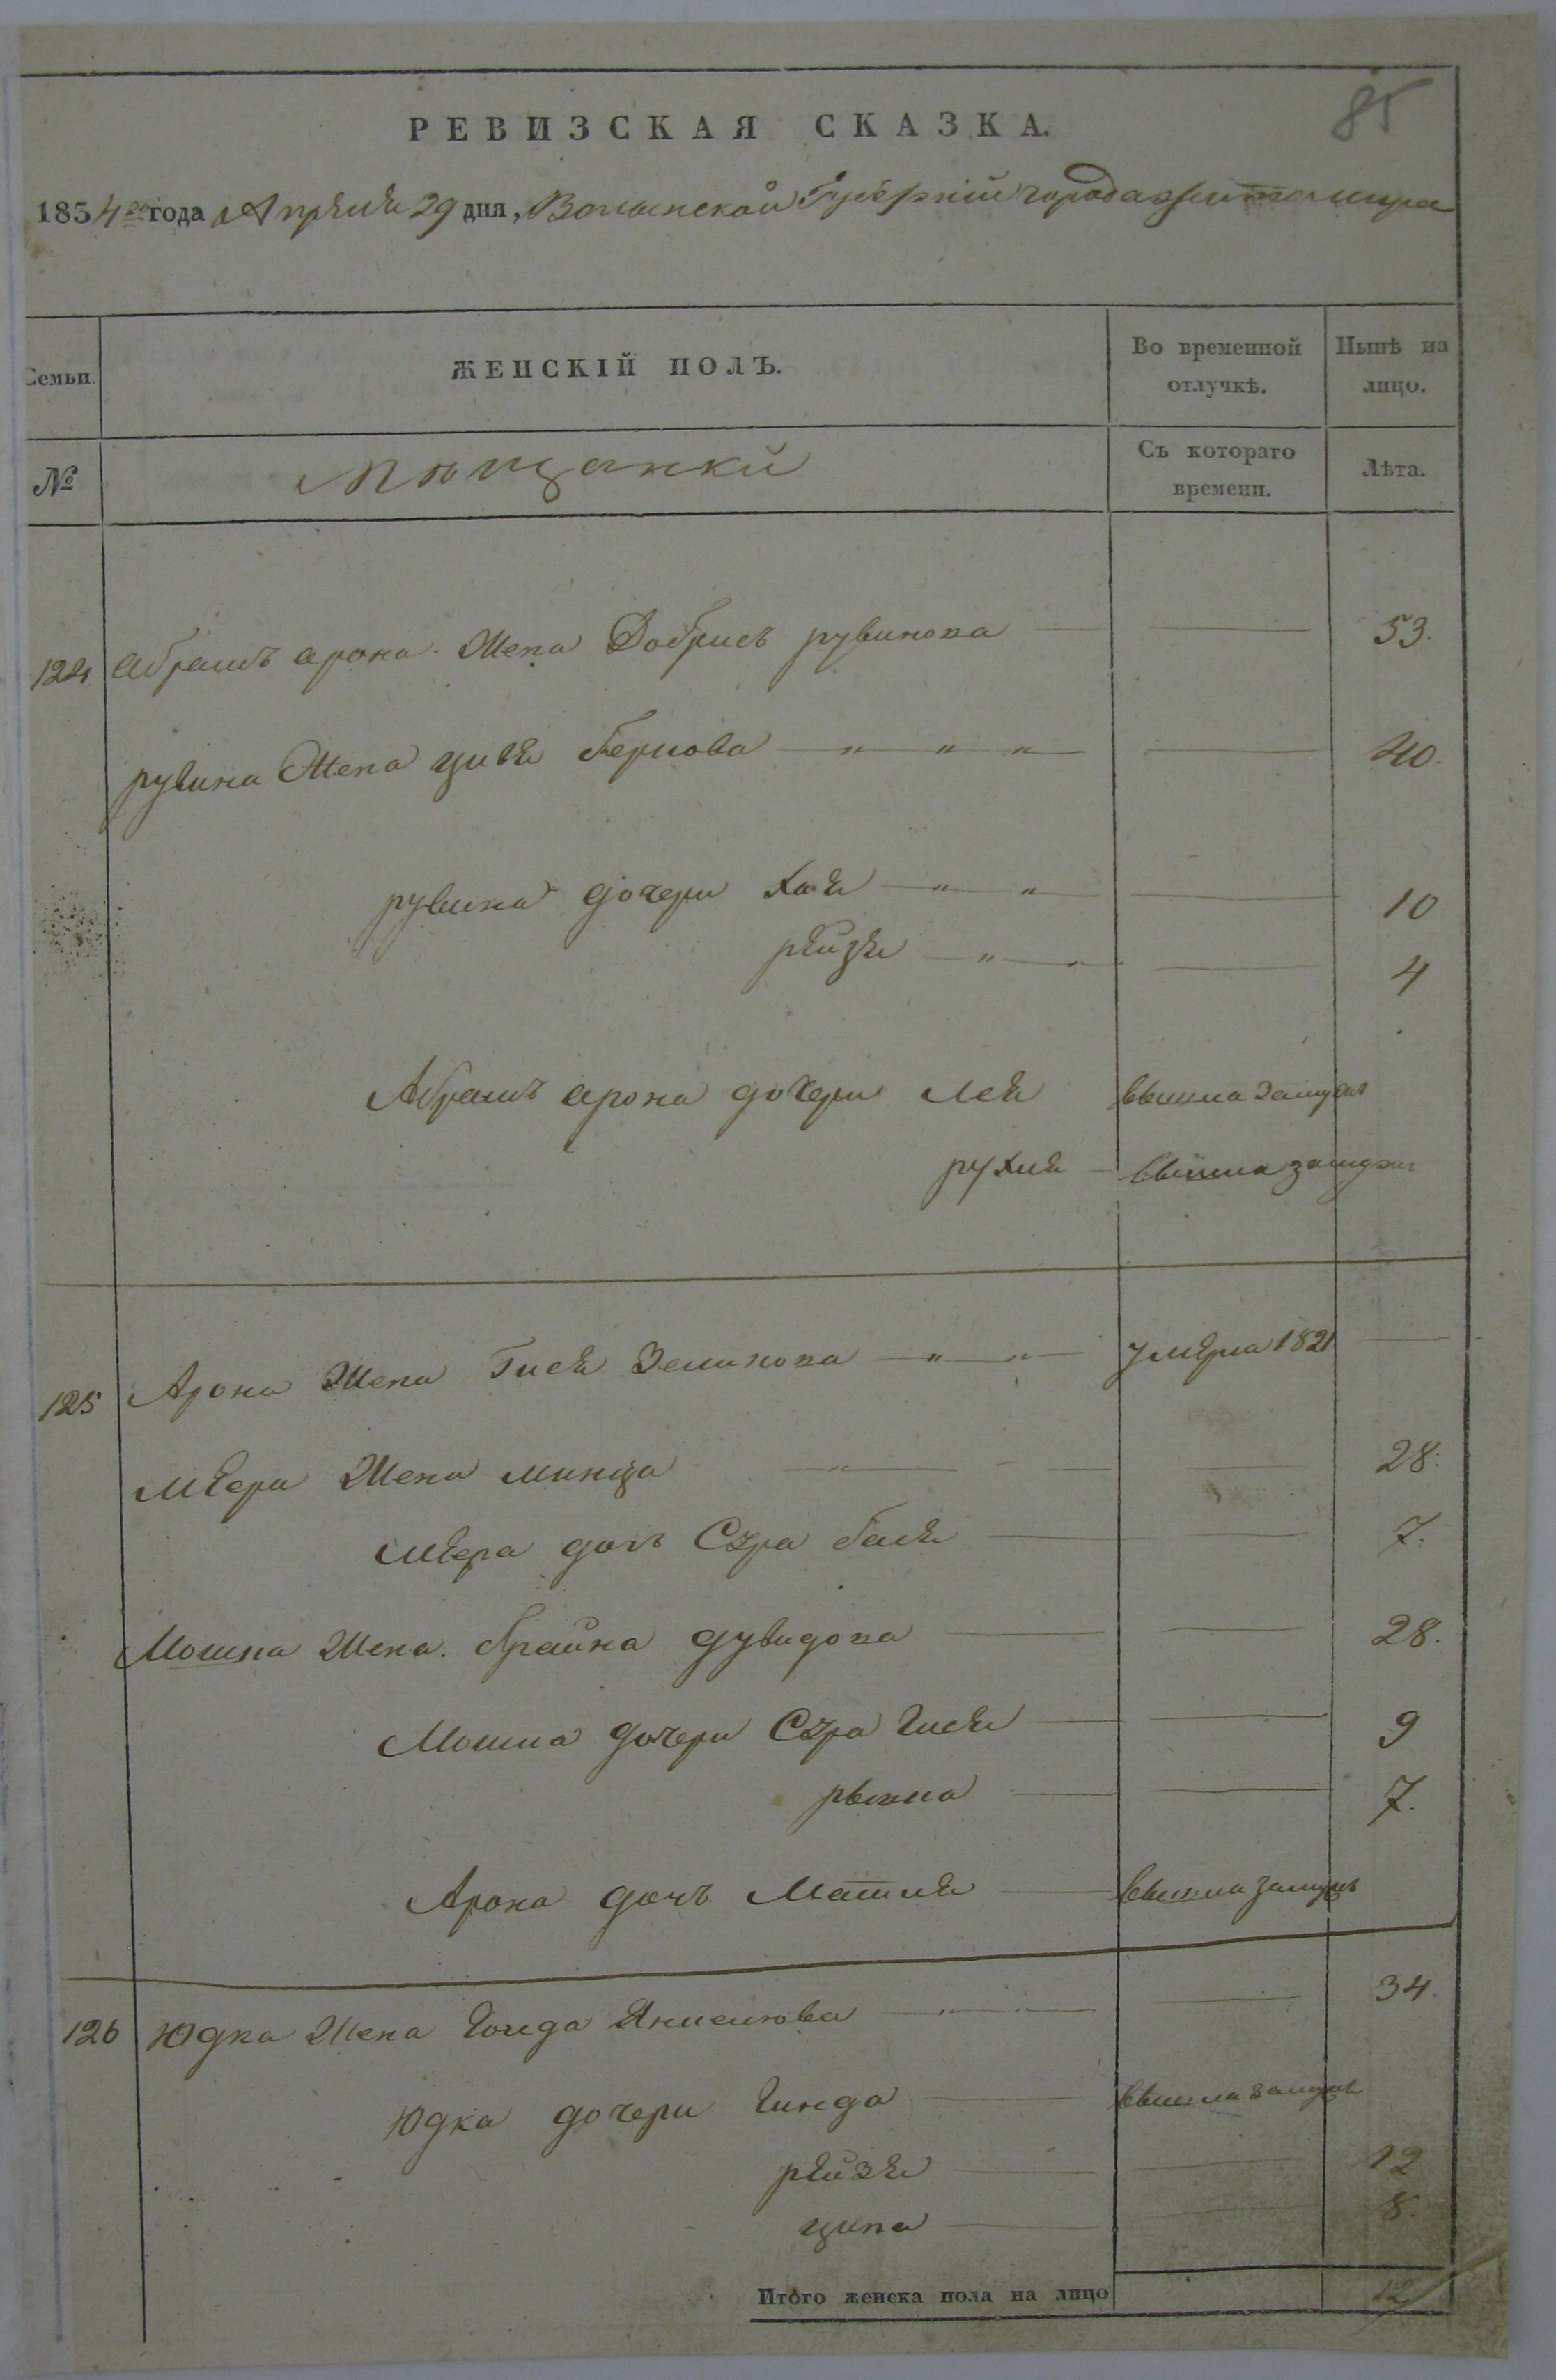 85
РЕВИЗСКАЯ СКАЗКА.
1834го года Апрѣля 29 дня, Волынской Губерніи города Житомира
Семьи.
ЖЕНСКІЙ ПОЛЪ.
Во временной отлучкѣ.
Нынѣ на лицо.
№
Мѣщанки
Съ котораго времени.
Лѣта.
124 Абрамъ арона Жена Добрись рувинова 53.
рувина Жена цивя Беркова " " " 40.
рувина дочери Хая " " 10
рейзя " " 4
Абрамъ арона дочери Лея вышла замужъ
рухля вышла замужъ
125 Арона Жена Гися Зеликова " " умерла 1821
Меера Жена минца " 28.
Меера дочь Сура бася 7.
Мошка Жена брайна дувидова 28.
Мошка дочери Сура гися 9
7.
Арона дочь Матля вышла замужъ
126 Юдка Жена голда Янкелова " " 34.
Юдка дочери гинда вышла замужъ
рейзя 12
ципа 8.
Итого женска пола на лицо 12